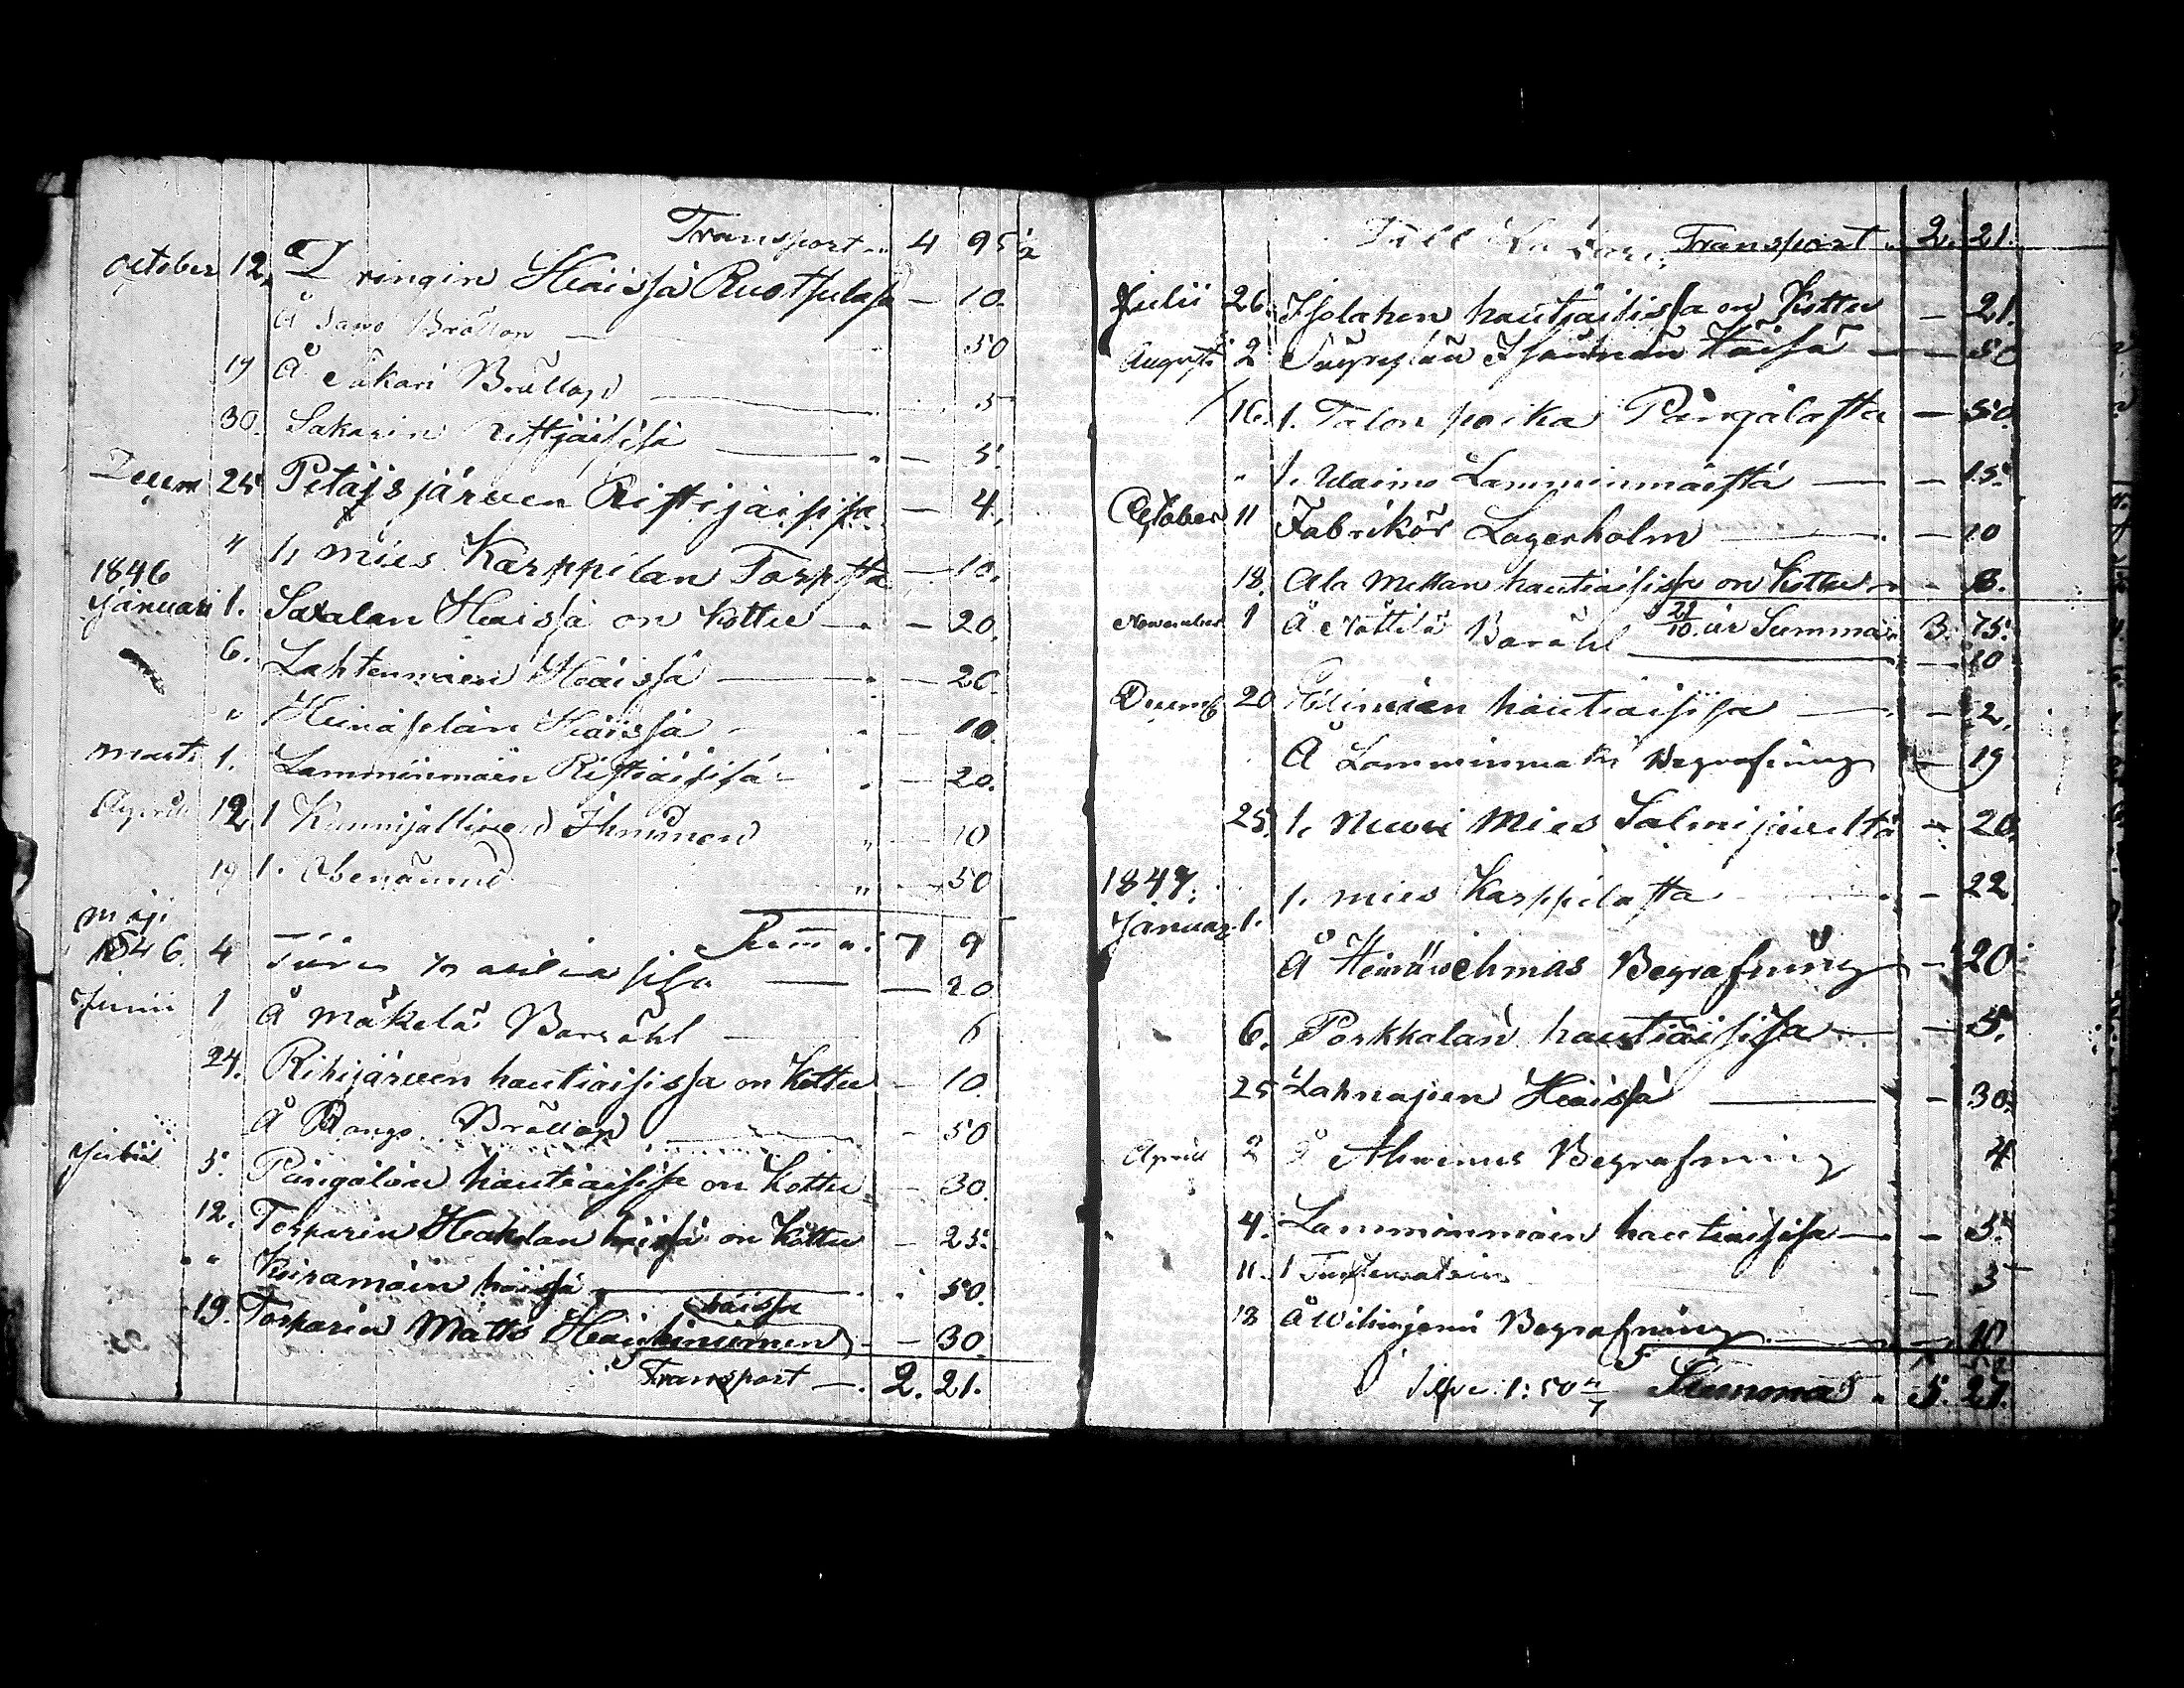 Transport 4 95 ½
October 12. Dringin Häissä Ruotsulassa — 10.
Å Bröllop — 50
19 Å Sakari Bröllop — 5
30. Sakarin ristijäisisä — 5.
Decem 25 Petäjsjärven Ristijäisissa — 4.
" 1, mies Karppilan Torpsta — 10.
1846
Januari 1. Saxalan Häissä on Kottu — 20.
6. Lahtenmäen Häissä — 20.
" Heinäselän Häissä — 10.
Marti 1. Lamminmäen Ristiäisisä — 20.
Aprill 12 1 Kunnijallinen Ihminen " — 10
19 1. " — 50
Maji Summa: 7 9
1846. 4 — 20
Junii 1 Å Mäkelä Barsöhl — 6
24. Rihijärven hautiaisissa on Kottu — 10.
Å Bröllop — 50
Julii 5. Pängälän hautiaisissa on Kottu — 30.
12. Torparin Hakalan häissä on Kottu — 25.
" Kuiramäin häissä — 50.
häissä
19. Torparin Matts — 30.
Transport — 2. 21.
Transport 2. 21.
Julii 26. Isolahen hautjaisissa on Kottu — 21.
Augusti 2 — 50
16. 1. Talon poika Pängälästä — 50.
" 1. Waimo Lamminmäistä — 15.
October 11 Fabrikör Lagerholm — 10
18. Ala Mettan hautiaisissa on Kottu — 8.
November 1 Å Nättilä Barsöhl 29/10 är Summan 3. 75.
— 10
Decemb 20 hautiaisissa — 2.
Å Lamminmäki Begrafning — 19
25. 1. Nuori Mies Salmijäveltä — 20.
1847.
1. mies Karppilasta — 22
Januar. 1.
Å Heinäwehmas Begrafning — 20
6. Porkkalan hautiäisissa — 5.
25 Lahnajsen Häissä — 30.
Aprill 2 Å Ahvenus Begrafning 4
4. Lamminmäen hautiaisissa — 5.
11. 1 — 5
18 Å Wihinjervi Begrafning — 10
1:50 Summa 5. 27.